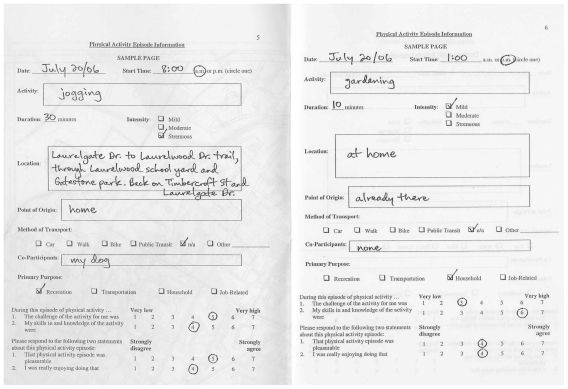 5
Physical Activity Episode Information
SAMPLE PAGE
Date: July 20/06 Start Time: 8:00 a.m. or p.m. (circle one)
Activity: jogging
Duration: 30 minutes Intensity: Mild
Moderate
Strenuous
Location: Laurelgate Dr. to Laurelwood Dr. trail,
through Laurelwood school yard and
Gatestone park. Back on Timbercroft St and
Laurelgate Dr.
Point of Origin: home
Method of Transport:
Car Walk Bike Public Transit n/a Other
Co-Participants: my dog
Primary Purpose:
Recreation Transportation Household Job-Related
During this episode of physical activity … Very low Very high
1. The challenge of the activity for me was 1 2 3 4 5 6 7
2. My skills in and knowledge of the activity 1 2 3 4 5 6 7
were
Please respond to the following two statements Strongly Strongly
about this physical activity episode: disagree agree
1. That physical activity episode was 1 2 3 4 5 6 7
pleasurable
2. I was really enjoying doing that 1 2 3 4 5 6 7
6
Physical Activity Episode Information
SAMPLE PAGE
Date: July 20/06 Start Time: 1:00 a.m. or p.m. (circle one)
Activity: gardening
Duration: 10 minutes Intensity: Mild
Moderate
Strenuous
Location: at home
Point of Origin: already there
Method of Transport:
Car Walk Bike Public Transit n/a Other
Co-Participants: none
Primary Purpose:
Recreation Transportation Household Job-Related
During this episode of physical activity … Very low Very high
1. The challenge of the activity for me was 1 2 3 4 5 6 7
2. My skills in and knowledge of the activity 1 2 3 4 5 6 7
were
Please respond to the following two statements Strongly Strongly
about this physical activity episode: disagree agree
1. That physical activity episode was 1 2 3 4 5 6 7
pleasurable
2. I was really enjoying doing that 1 2 3 4 5 6 7